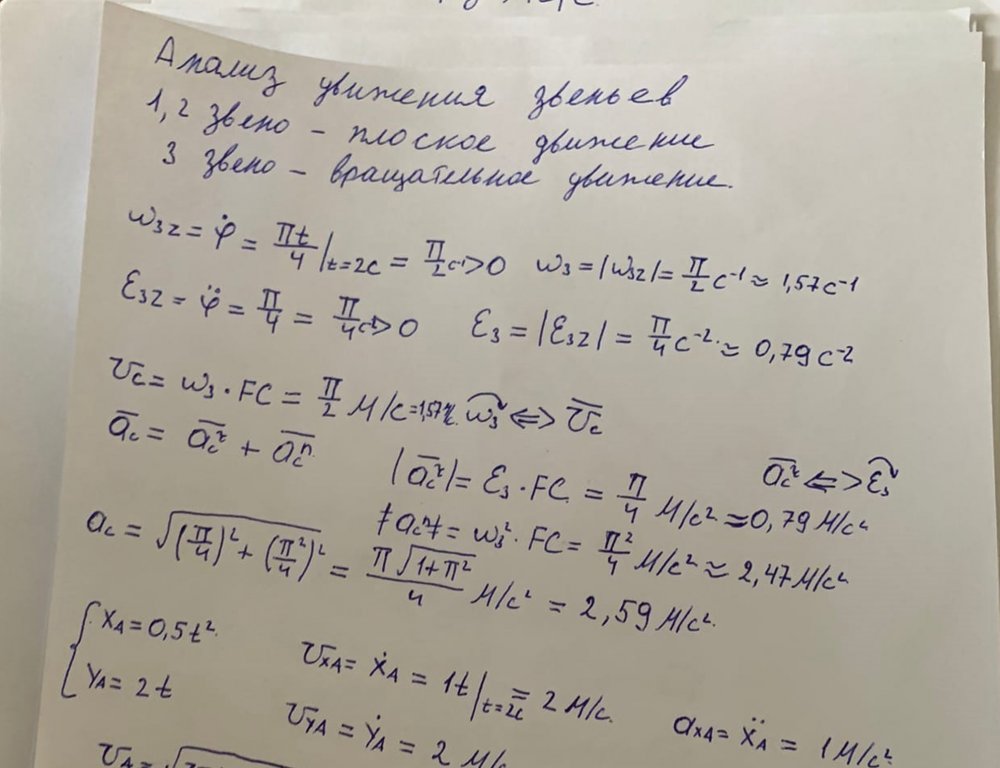 Анализ движения звеньев
1,2 звено – плоское движение
3 звено – вращательное движение.
ω₃z = φ̇ = πt/4 |t=2c = π/2 c⁻¹ > 0   ω₃ = |ω₃z| = π/2 c⁻¹ ≈ 1,57 c⁻¹
ε₃z = φ̈ = π/4 = π/4 c⁻² > 0   ε₃ = |ε₃z| = π/4 c⁻² ≈ 0,79 c⁻²
v̅c = ω₃ · FC = π/2 м/с = 1,57 ω₃ <=> v̅c
a̅c = a̅cᵗ + a̅cⁿ   |a̅cᵗ| = ε₃ · FC = π/4 м/с² ≈ 0,79 м/с²   a̅cᵗ <=> ε₃
acⁿ = ω₃² · FC = π²/4 м/с² ≈ 2,47 м/с²
ac = √((π/4)² + (π²/4)²) = π√(1+π²)/4 м/с² = 2,59 м/с²
{ xA = 0,5t²   vxA = ẋA = 1t |t=2c = 2 м/с.
yA = 2t   vyA = ẏA = 2 м/   axA = ẍA = 1 м/с²
vA = √